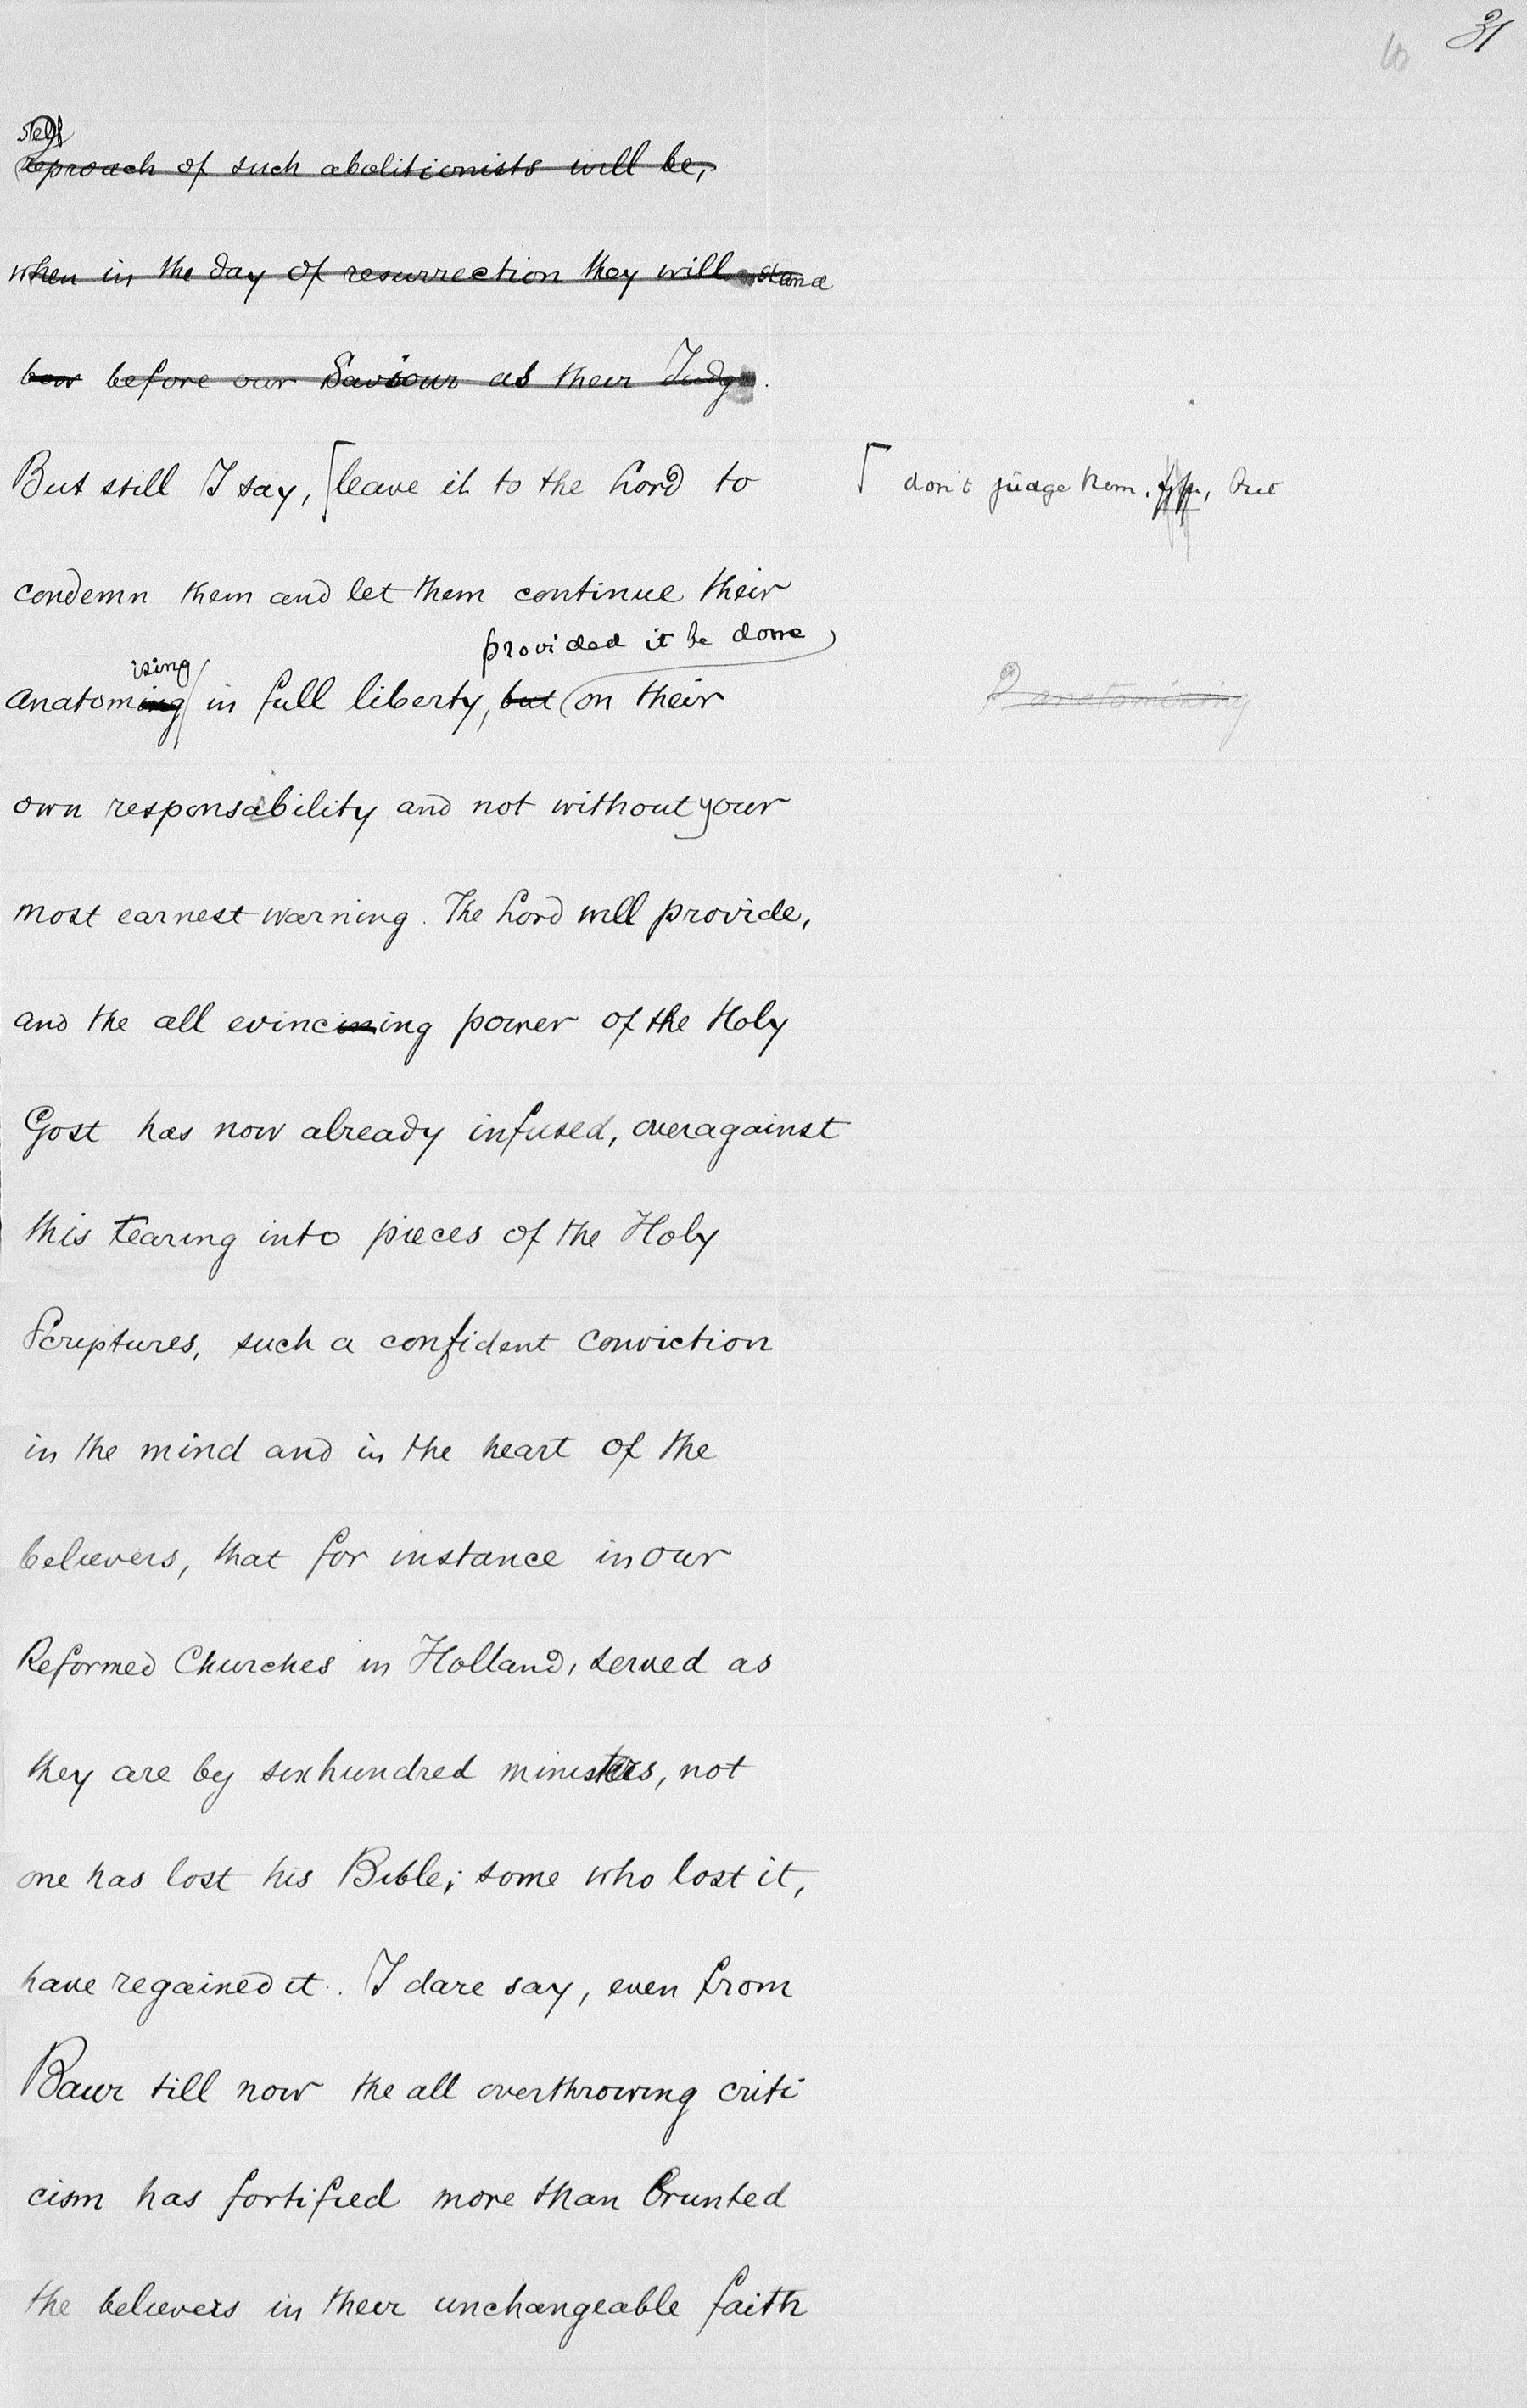 31
self
reproach of such abolitionists will be,
when in the day of resurrection they will stand
bow before our Saviour as their Judge.
But still I say, leave it to the Lord to
don't judge them, but
condemn them and let them continue their
provided it be done
ising
anatoming in full liberty, but on their
anatomining
own responsability and not without your
most earnest warning. The Lord will provide,
and the all evincing power of the Holy
Gost has now already infused, overagainst
this tearing into pieces of the Holy
Scriptures, such a confident conviction
in the mind and in the heart of the
believers, that for instance in our
Reformed Churches in Holland, served as
they are by sixhundred ministers, not
one has lost his Bible; some who lost it,
have regained it. I dare say, even from
Baur till now the all overthrowing criti
cism has fortified more than brunted
the believers in their unchangeable faith